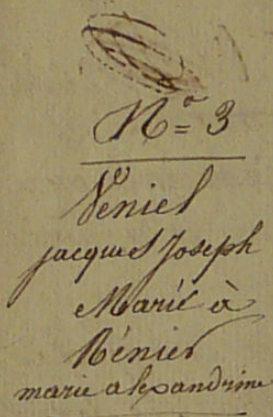 N° 3
Veniel
jacques Joseph
Marié à
Rénier
marie alexandrine